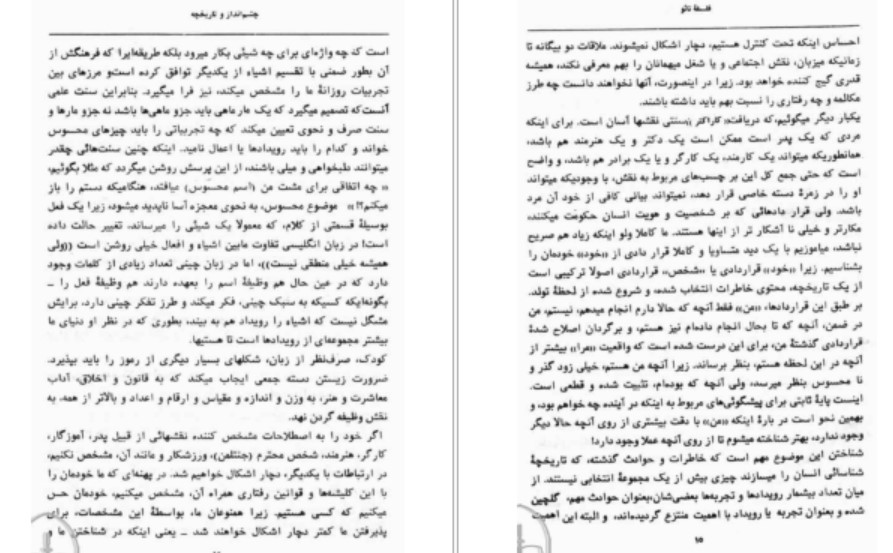 چشم‌انداز و تاریخچه
است که چه واژه‌ای برای چه شیئی بکار میرود بلکه طریقه‌ایرا که فرهنگش از
آن بطور ضمنی با تقسیم اشیاء از یکدیگر توافق کرده است‌و مرزهای بین
تجربیات روزانهٔ ما را مشخص میکند، نیز فرا میگیرد. بنابراین سنت علمی
آنست‌که تصمیم میگیرد که یک مارماهی باید جزو ماهی‌ها باشد نه جزو مارها و
سنت صرف و نحوی تعیین میکند که چه تجربیاتی را باید چیزهای محسوس
خواند و کدام را باید رویدادها یا اعمال نامید. اینکه چنین سنت‌هائی چقدر
میتوانند دلبخواهی و میلی باشند، از این پرسش روشن میگردد که مثلا بگوئیم،
« چه اتفاقی برای مشت من (اسم محسوس) میافتد، هنگامیکه دستم را باز
میکنم؟! » موضوع محسوس، به نحوی معجزه آسا ناپدید میشود، زیرا یک فعل
بوسیلهٔ قسمتی از کلام، که معمولاً یک شیئی را میرساند، تغییر حالت داده
است! در زبان انگلیسی تفاوت مابین اشیاء و افعال خیلی روشن است ((ولی
همیشه خیلی منطقی نیست))، اما در زبان چینی تعداد زیادی از کلمات وجود
دارد که در عین حال هم وظیفهٔ اسم را بعهده دارند هم وظیفهٔ فعل را ــ
بگونه‌ایکه کسیکه به سبک چینی، فکر میکند و طرز تفکر چینی دارد، برایش
مشگل نیست که اشیاء را رویداد هم به بیند، بطوری که در نظر او دنیای ما
بیشتر مجموعه‌ای از رویدادها است تا هستیها.
کودک، صرف‌نظر از زبان، شکلهای بسیار دیگری از رموز را باید بپذیرد.
ضرورت زیستن دسته جمعی ایجاب میکند که به قانون و اخلاق، آداب
معاشرت و هنر، به وزن و اندازه و مقیاس و ارقام و اعداد و بالاتر از همه، به
نقش وظیفه گردن نهد.
اگر خود را به اصطلاحات مشخص کننده نقشهائی از قبیل پدر، آموزگار،
کارگر، هنرمند، شخص محترم (جنتلمن)، ورزشکار و مانند آن، مشخص نکنیم،
در ارتباطات با یکدیگر، دچار اشکال خواهیم شد. در پهنه‌ای که ما خودمان را
با این کلیشه‌ها و قوانین رفتاری همراه آن، مشخص میکنیم، خودمان حس
میکنیم که کسی هستیم. زیرا همنوعان ما، بواسطهٔ این مشخصات، برای
پذیرفتن ما کمتر دچار اشکال خواهند شد ــ یعنی اینکه در شناختن ما و
فلسفهٔ تائو
احساس اینکه تحت کنترل هستیم، دچار اشکال نمیشوند. ملاقات دو بیگانه تا
زمانیکه میزبان، نقش اجتماعی و یا شغل میهمانان را بهم معرفی نکند، همیشه
قدری گیج کننده خواهد بود. زیرا در اینصورت، آنها نخواهند دانست چه طرز
مکالمه و چه رفتاری را نسبت بهم باید داشته باشند.
یکبار دیگر میگوئیم،که دریافت« کاراکتر »سنتی نقشها آسان است. برای اینکه
مردی که یک پدر است ممکن است یک دکتر و یک هنرمند هم باشد،
همانطوریکه میتواند یک کارمند، یک کارگر و یا یک برادر هم باشد، و واضح
است که حتی جمع کل این بر چسب‌های مربوط به نقش، با وجودیکه میتواند
او را در زمرهٔ دسته خاصی قرار دهد، نمیتواند بیانی کافی از خود آن مرد
باشد. ولی قرار دادهائی که بر شخصیت و هویت انسان حکومت میکنند،
مکارتر و خیلی نا آشکار تر از اینها هستند. ما کاملا ولو اینکه زیاد هم صریح
نباشد، میاموزیم با یک دید متساویا و کاملا قرار دادی از «خود» خودمان را
بشناسیم. زیرا «خود» قراردادی یا «شخص» قراردادی اصولا ترکیبی است
از یک تاریخچه، محتوی خاطرات انتخاب شده، و شروع شده از لحظهٔ تولد.
بر طبق این قراردادها، «من» فقط آنچه که حالا دارم انجام میدهم، نیستم، من
در ضمن، آنچه که تا بحال انجام داده‌ام نیز هستم، و برگردان اصلاح شدهٔ
قراردادی گذشتهٔ من، برای این درست شده است که واقعیت «مرا» بیشتر از
آنچه در این لحظه هستم، بنظر برساند. زیرا آنچه من هستم، خیلی زود گذر و
نا محسوس بنظر میرسد، ولی آنچه که بوده‌ام، تثبیت شده و قطعی است.
اینست پایهٔ ثابتی برای پیشگوئی‌های مربوط به اینکه در آینده چه خواهم بود، و
بهمین نحو است در بارهٔ اینکه «من» با دقت بیشتری از روی آنچه حالا دیگر
وجود ندارد، بهتر شناخته میشوم تا از روی آنچه عملا وجود دارد!
شناختن این موضوع مهم است که خاطرات و حوادث گذشته، که تاریخچهٔ
شناسائی انسان را میسازند چیزی بیش از یک مجموعهٔ انتخابی نیستند. از
میان تعداد بیشمار رویدادها و تجربه‌ها بعضی‌شان،بعنوان حوادث مهم، گلچین
شده و بعنوان تجربه یا رویداد با اهمیت منتزع گردیده‌اند، و البته این اهمیت
۱۵